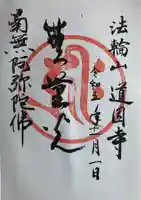 法輪山 道國寺
令和五年十一月一日
無量光
南無阿弥陀佛